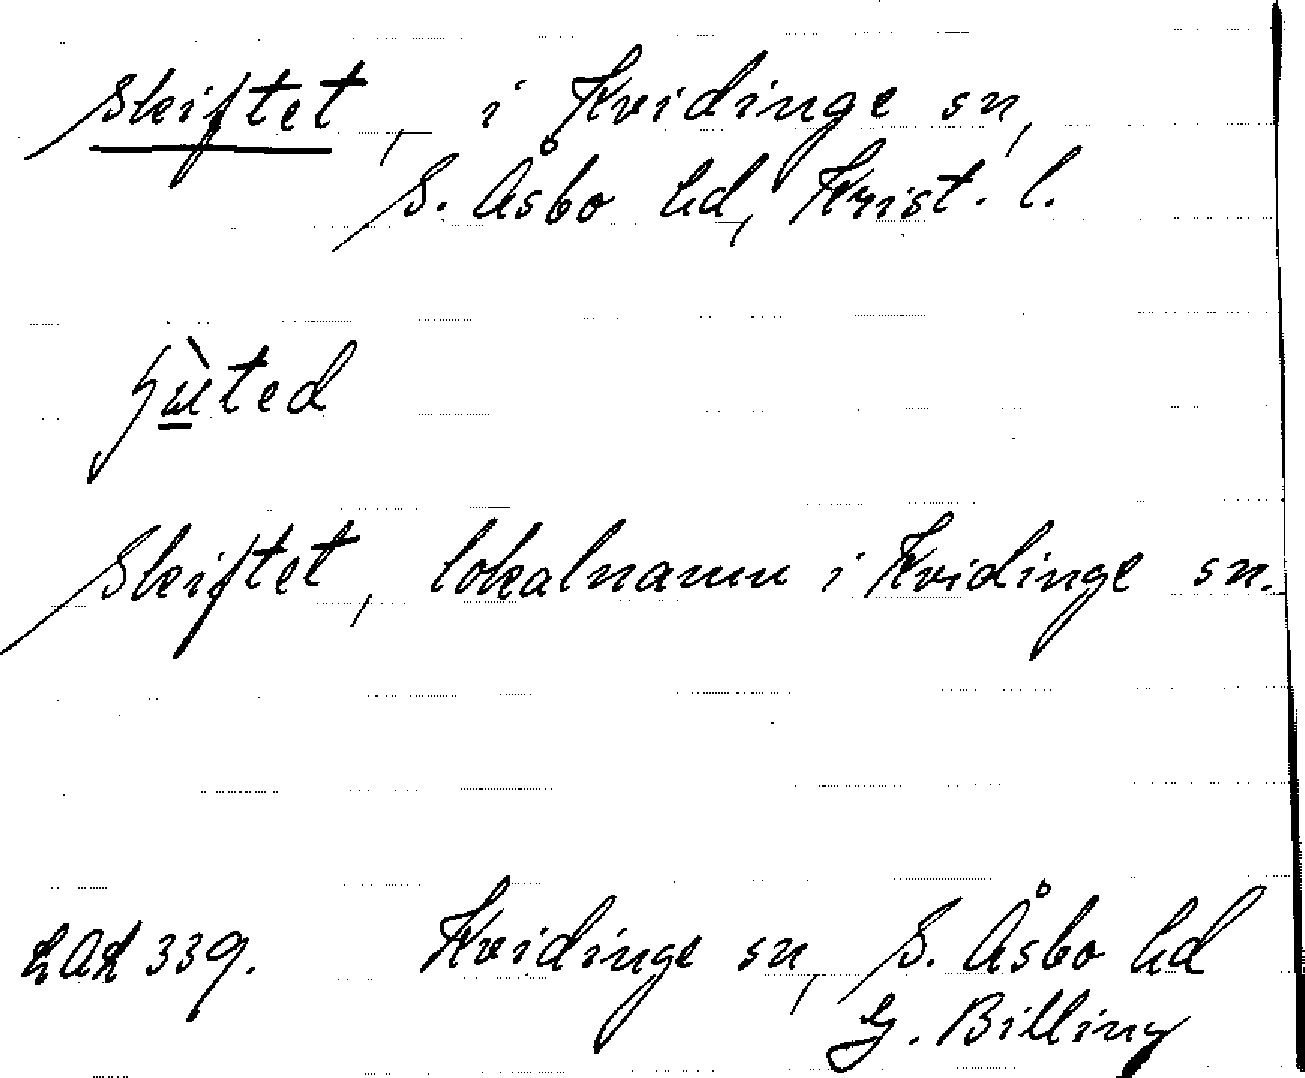 Skiftet, i Kvidinge sn,
S. Åsbo hd, Krist. l.
Skiftet, lokalnamn i Kvidinge sn.
LAL 339. Kvidinge sn, S. Åsbo hd
G. Billing